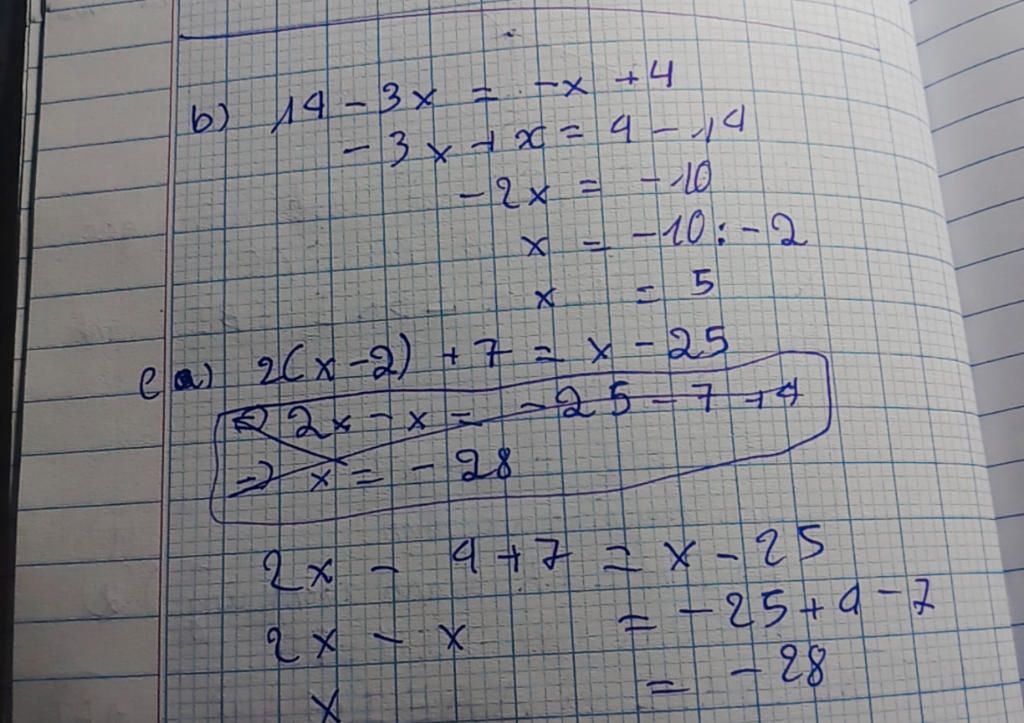 b) 14 - 3x = -x + 4
- 3x + x = 4 - 14
- 2x = - 10
x = -10 : - 2
x = 5
a) 2(x - 2) + 7 = x - 25
⇔ 2x - x = - 25 - 7 + 4
⇒ x = - 28
2x - 4 + 7 = x - 25
2x - x = - 25 + 4 - 7
x = - 28